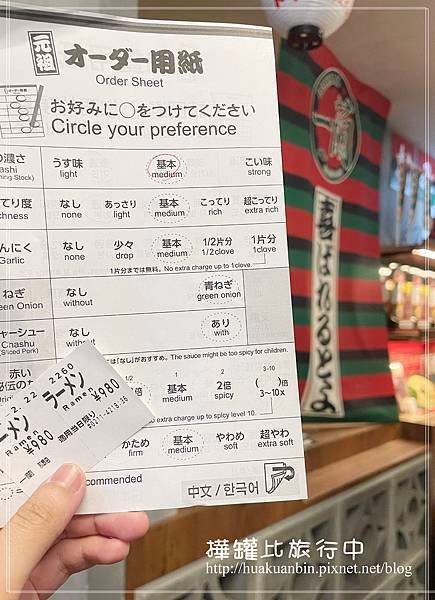 元祖 オーダー用紙
Order Sheet
お好みに〇をつけてください
Circle your preference
うす味 基本 こい味
light medium strong
なし あっさり 基本 こってり 超こってり
none light medium rich extra rich
んにく なし 少々 基本 1/2片分 1片分
Garlic none drop medium 1/2clove 1clove
1片分までは無料。No extra charge up to 1clove.
ねぎ なし 青ねぎ
without green onion
チャーシュー なし あり
Chashu without with
(Sliced Pork)
赤い
「なし」がおすすめ。The sauce might be too spicy for children.
基本 1 2 (3-10)
medium 2倍 3~10x
spicy
No extra charge up to spicy level 10.
かため 基本 やわめ 超やわ
firm medium soft extra soft
commended
中文 / 한국어
2260
ラーメン
Ramen
¥980
適用当日限り
ラーメン
Ramen
¥980
喜ばれるとさよ
樺罐比旅行中
http://huakuanbin.pixnet.net/blog